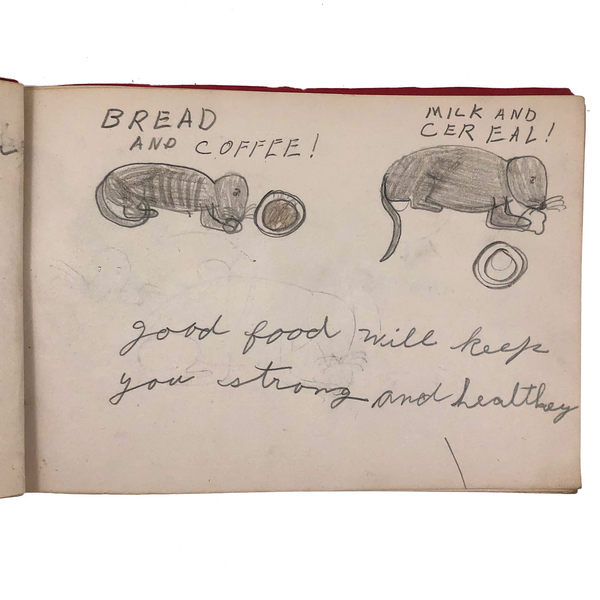 BREAD
AND COFFEE!
MILK AND
CEREAL!
good food will keep
you strong and healthey